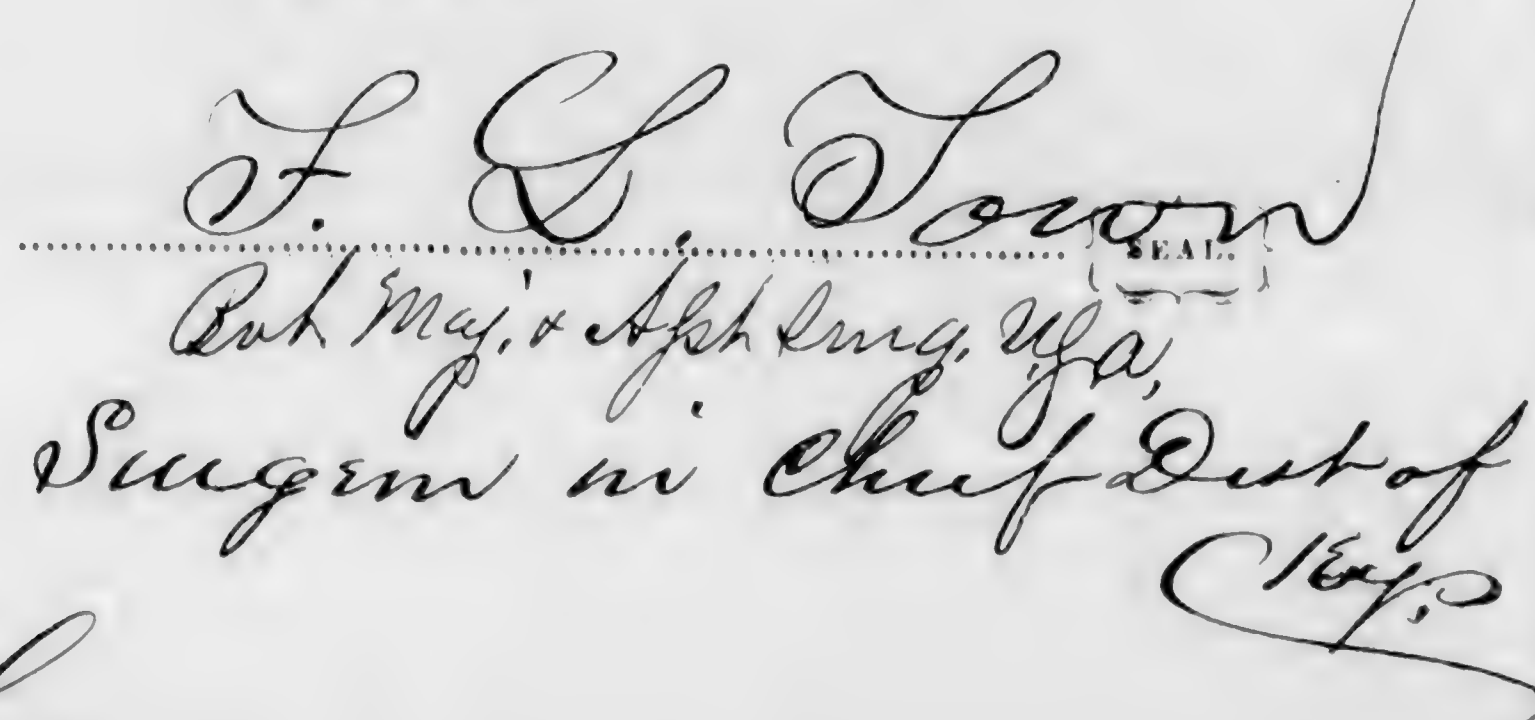 F. L. Town
SEAL.
Bvt Maj. & Asst Surg. U.S.A.
Surgeon in Chief Dist of
Ky.